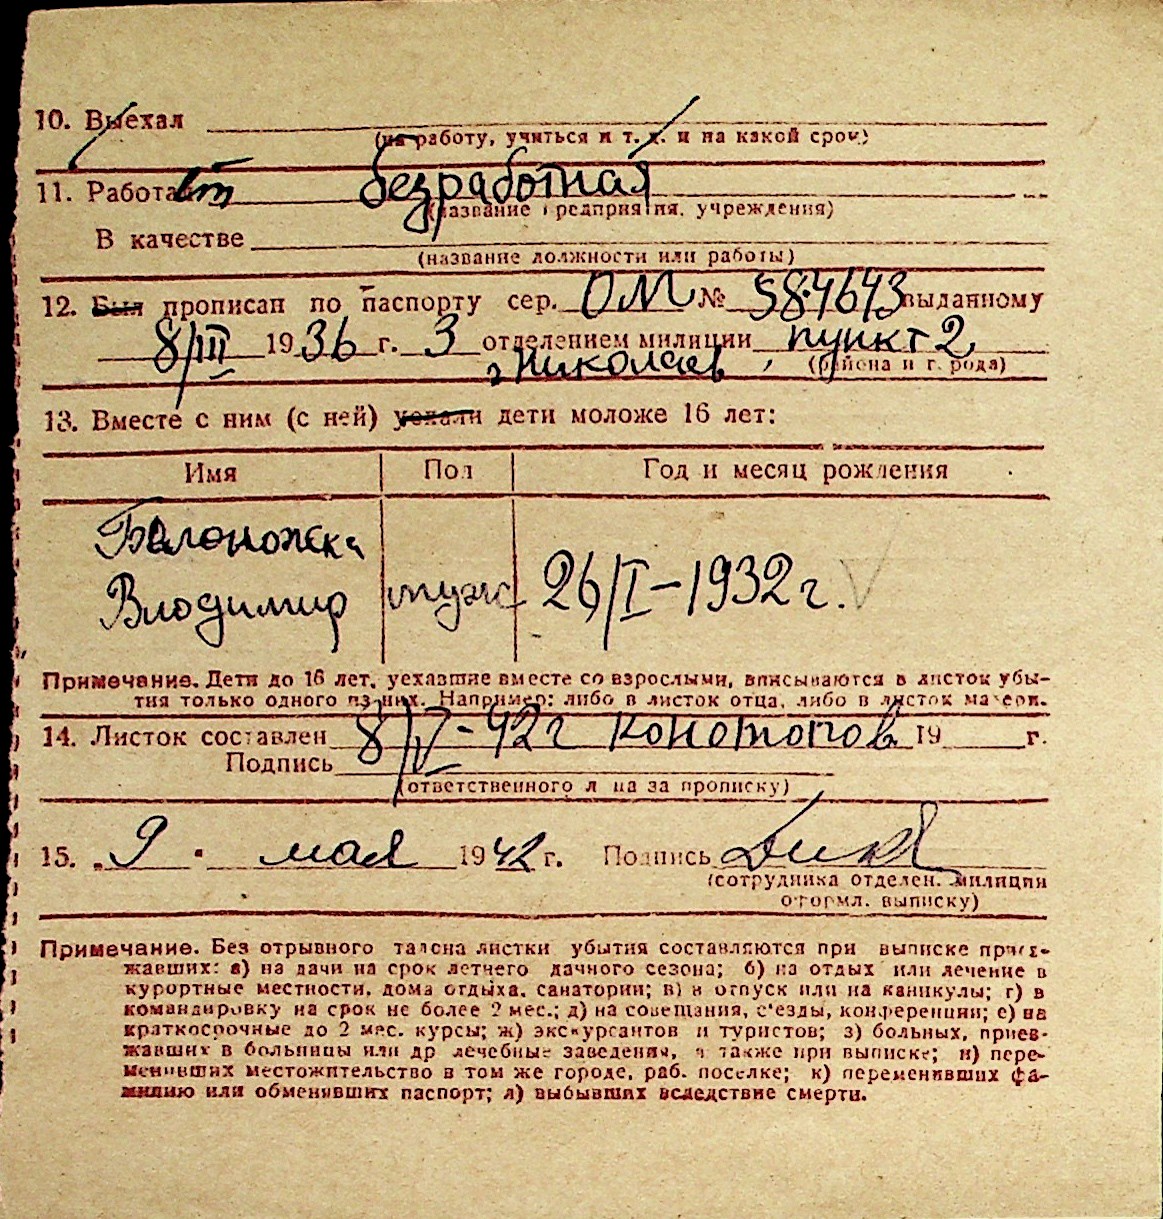 10. Выехал
(на работу, учиться и т. д. и на какой срок)
11. Работает безработная
(название предприятия, учреждения)
В качестве
(название должности или работы)
12. Был прописан по паспорту сер. ОМ № 584643 выданному
8/III 1936 г. 3 отделением милиции пункт 2
г Николаев (района и города)
13. Вместе с ним (с ней) уехали дети моложе 16 лет:
Имя Пол Год и месяц рождения
Белоножка
Влодимир муж 26/I-1932 г.
Примечание. Дети до 16 лет, уехавшие вместе со взрослыми, вписываются в листок убы-
тия только одного из них. Например: либо в листок отца, либо в листок матери.
14. Листок составлен 8/V-42г Конотопов 19 г.
Подпись
(ответственного лица за прописку)
15. „9" мая 1942 г. Подпись
(сотрудника отделен. милиции
оформл. выписку)
Примечание. Без отрывного талона листки убытия составляются при выписке приез-
жавших: а) на дачи на срок летнего дачного сезона; б) на отдых или лечение в
курортные местности, дома отдыха, санатории; в) в отпуск или на каникулы; г) в
командировку на срок не более 2 мес.; д) на совещания, с'езды, конференции; е) на
краткосрочные до 2 мес. курсы; ж) экскурсантов и туристов; з) больных, приез-
жавших в больницы или др лечебные заведения, а также при выписке; и) пере-
менивших местожительство в том же городе, раб. поселке; к) переменивших фа-
милию или обменявших паспорт; л) выбывших вследствие смерти.